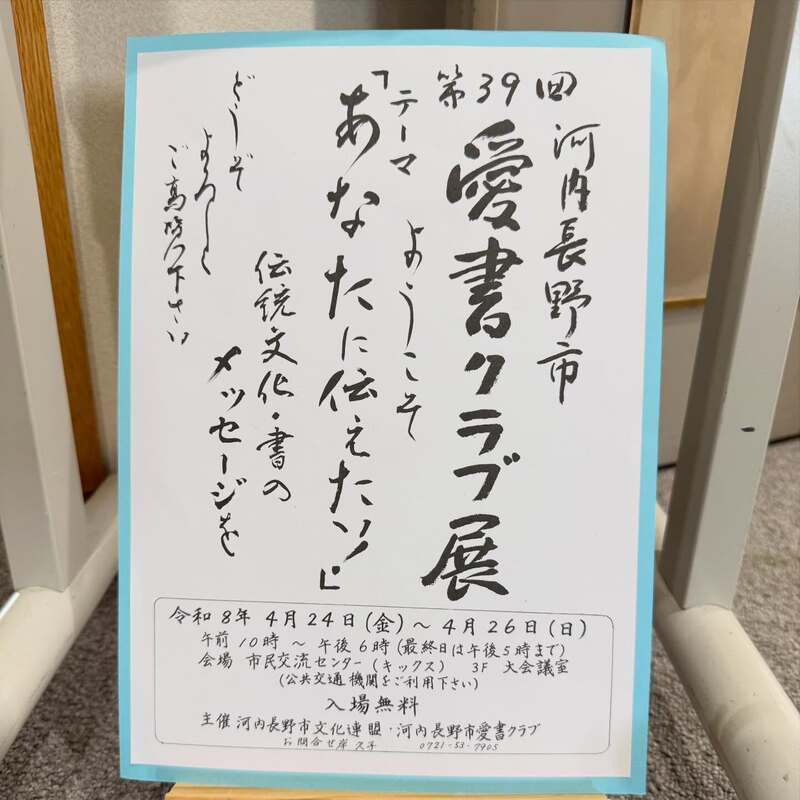 第39回
河内長野市
愛書クラブ展
ようこそ
テーマ
「あなたに伝えたい」
伝統文化・書の
メッセージを
どうぞ
よろしく
ご高覧下さい
令和8年 4月24日(金)～4月26日(日)
午前10時～午後6時(最終日は午後5時まで)
会場 市民交流センター(キックス) 3F 大会議室
(公共交通機関をご利用下さい)
入場無料
主催 河内長野市文化連盟・河内長野市愛書クラブ
お問合せ 岸 久子 0721-53-7905